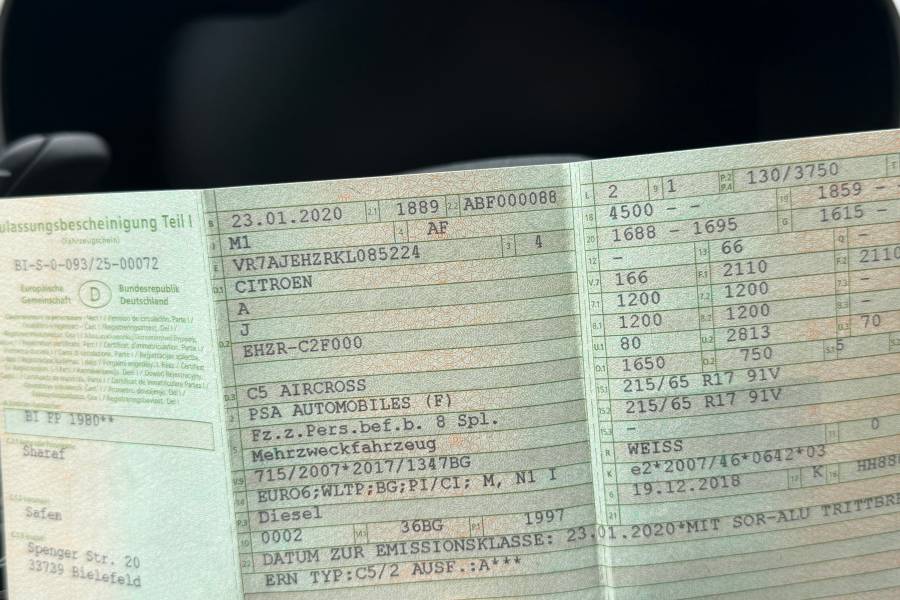 Zulassungsbescheinigung Teil I
(Fahrzeugschein)
BI-S-0-093/25-00072
Europäische Gemeinschaft
D
Bundesrepublik Deutschland
BI PP 1980**
Sharef
Safen
Spenger Str. 20
33739 Bielefeld
B 23.01.2020 2.1 1889 2.2 ABF000088
J M1 4 AF
E VR7AJEHZRKL085224 3 4
D.1 CITROEN
A
D.2 J
EHZR-C2F000
D.3 C5 AIRCROSS
2 PSA AUTOMOBILES (F)
5 Fz.z.Pers.bef.b. 8 Spl.
Mehrzweckfahrzeug
V.9 715/2007*2017/1347BG
14 EURO6;WLTP;BG;PI/CI; M, N1 I
P.3 Diesel
10 0002 14.1 36BG P.1 1997
22 DATUM ZUR EMISSIONSKLASSE: 23.01.2020*MIT SOR-ALU TRITTBRE
ERN TYP:C5/2 AUSF.:A***
L 2 9 1 P.2 P.4 130/3750 T
18 4500 - - 19 1859 - -
20 1688 - 1695 G 1615 -
12 - 13 66 Q -
V.7 166 F.1 2110 F.2 2110
7.1 1200 7.2 1200 7.3 -
8.1 1200 8.2 1200 8.3 -
U.1 80 U.2 2813 U.3 70
O.1 1650 O.2 750 S.1 5 S.2
15.1 215/65 R17 91V
15.2 215/65 R17 91V
15.3 -
R WEISS 11 0
K e2*2007/46*0642*03
6 19.12.2018 17 K 16
21